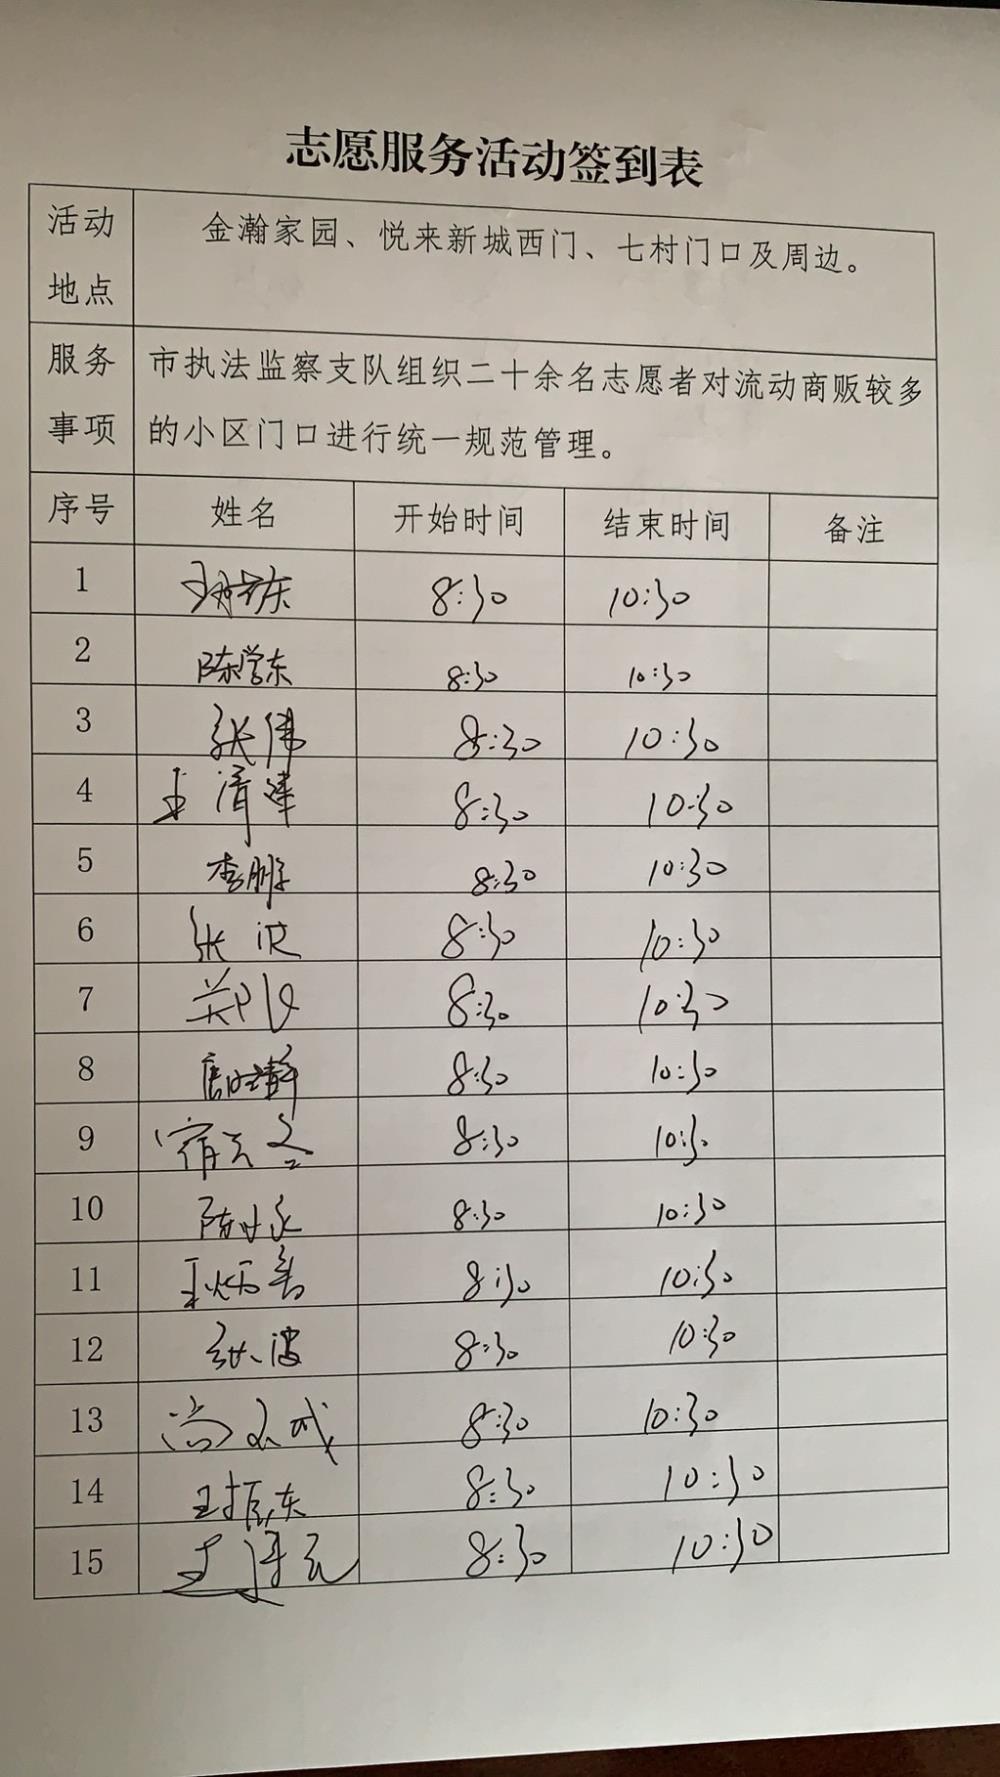 志愿服务活动签到表
活动地点 金瀚家园、悦来新城西门、七村门口及周边。
服务事项 市执法监察支队组织二十余名志愿者对流动商贩较多
的小区门口进行统一规范管理。
序号 姓名 开始时间 结束时间 备注
1 8:30 10:30
2 陈学东 8:30 10:30
3 张伟 8:30 10:30
4 王清建 8:30 10:30
5 李鹏 8:30 10:30
6 张波 8:30 10:30
7 8:30 10:30
8 8:30 10:30
9 8:30 10:30
10 8:30 10:30
11 8:30 10:30
12 张波 8:30 10:30
13 8:30 10:30
14 王振东 8:30 10:30
15 8:30 10:30